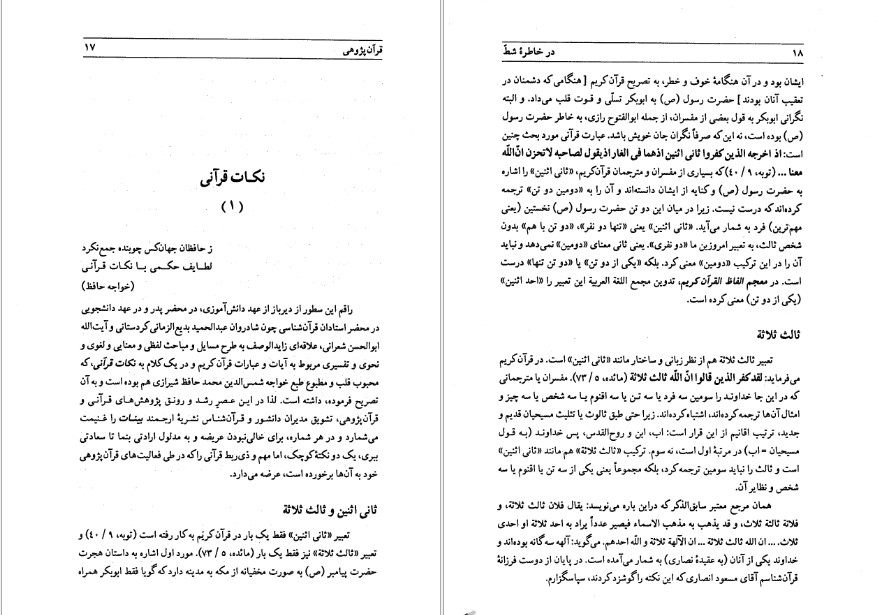 قرآن‌پژوهی ۱۷
نکـات قرآنی
(۱)
ز حافظان جهان‌کس چوبنده جمع‌نکرد
لطایف حکمـی بـا نکات قـرآنـی
(خواجه حافظ)
راقم این سطور از دیرباز از عهد دانش‌آموزی، در محضر پدر و در عهد دانشجویی
در محضر استادان قرآن‌شناسی چون شادروان عبدالحمید بدیع‌الزمانی کردستانی و آیت‌الله
ابوالحسن شعرانی، علاقه‌ای زایدالوصف به طرح مسایل و مباحث لفظی و معنایی و لغوی و
نحوی و تفسیری مربوط به آیات و عبارات قرآن کریم و در یک کلام به نکات قرآنی، که
محبوب قلب و مطبوع طبع خواجه شمس‌الدین محمد حافظ شیرازی هم بوده است و به آن
تصریح فرموده، داشته است. لذا در این عصر رشد و رونق پژوهش‌های قرآنـی و
قرآن‌پژوهی، تشویق مدیران دانشور و قرآن‌شناس نشریهٔ ارجمند بینات را غنیمت
می‌شمارد و در هر شماره، برای خالی‌نبودن عریضه و به مدلول ارادتی بنما تا سعادتی
ببری، یک دو نکتهٔ کوچک، اما مهم و ذی‌ربط قرآنی را که در طی فعالیت‌های قرآن‌پژوهی
خود به آن‌ها برخورده است، عرضه می‌دارد.
ثانی اثنین و ثالث ثلاثة
تعبیر «ثانی اثنین» فقط یک بار در قرآن کریم به کار رفته است (توبه، ۹ / ۴۰) و
تعبیر «ثالث ثلاثة» نیز فقط یک بار (مائده، ۵ / ۷۳). مورد اول اشاره به داستان هجرت
حضرت پیامبر (ص) به صورت مخفیانه از مکه به مدینه دارد که گویا فقط ابوبکر همراه
۱۸ در خاطرهٔ شطّ
ایشان بود و در آن هنگامهٔ خوف و خطر، به تصریح قرآن کریم [هنگامی که دشمنان در
تعقیب آنان بودند] حضرت رسول (ص) به ابوبکر تسلّی و قوت قلب می‌داد. و البته
نگرانی ابوبکر به قول بعضی از مفسران، از جمله ابوالفتوح رازی، به خاطر حضرت رسول
(ص) بوده است، نه این که صرفاً نگران جان خویش باشد. عبارت قرآنی مورد بحث چنین
است: اذ اخرجه الذین کفروا ثانی اثنین اذهما فی الغار اذیقول لصاحبه لاتحزن انّ‌اللّه
معنا ... (توبه، ۹ / ۴۰) که بسیاری از مفسران و مترجمان قرآن‌کریم، «ثانی اثنین» را اشاره
به حضرت رسول (ص) و کنایه از ایشان دانسته‌اند و آن را به «دومین دو تن» ترجمه
کرده‌اند که درست نیست. زیرا در میان این دو تن حضرت رسول (ص) نخستین (یعنی
مهم‌ترین) فرد به شمار می‌آید. «ثانی اثنین» یعنی «تنها دو نفر»، «دو تن با هم» بدون
شخص ثالث، به تعبیر امروزین ما «دو نفری». یعنی ثانی معنای «دومین» نمی‌دهد و نباید
آن را در این ترکیب «دومین» معنی کرد. بلکه «یکی از دو تن» یا «دو تن تنها» درست
است. در معجم الفاظ القرآن کریم، تدوین مجمع اللغة العربیة این تعبیر را «احد اثنین»
(یکی از دو تن) معنی کرده است.
ثالث ثلاثة
تعبیر ثالث ثلاثة هم از نظر زبانی و ساختار مانند «ثانی اثنین» است. در قرآن کریم
می‌فرماید: لقد کفر الذین قالوا انّ اللّه ثالث ثلاثة (مائده، ۵ / ۷۳). مفسران یا مترجمانی
که در این جا خداوند را سومین سه فرد یا سه تن یا سه اقنوم یا سه شخص یا سه چیز و
امثال آن‌ها ترجمه کرده‌اند، اشتباه کرده‌اند. زیرا حتی طبق ثالوث یا تثلیث مسیحیان قدیم و
جدید، ترتیب اقانیم از این قرار است: اب، ابن و روح‌القدس، پس خداوند (به قول
مسیحیان = اب) در مرتبهٔ اول است، نه سوم. ترکیب «ثالث ثلاثة» هم مانند «ثانی اثنین»
است و ثالث را نباید سومین ترجمه کرد، بلکه مجموعاً یعنی یکی از سه تن یا اقنوم یا سه
شخص و نظایر آن.
همان مرجع معتبر سابق‌الذکر که دراین باره می‌نویسد: یقال فلان ثالث ثلاثة، و
فلانة ثالثة ثلاث، و قد یذهب به مذهب الاسماء فیصیر عدداً یراد به احد ثلاثة او احدی
ثلاث. ... ان الله ثالث ثلاثة ... ان الآلهة ثلاثة و اللّه احدهم. می‌گوید: آلهه سه‌گانه بوده‌اند و
خداوند یکی از آنان (به عقیدهٔ نصاری) به شمار می‌آمده است. در پایان از دوست فرزانهٔ
قرآن‌شناسم آقای مسعود انصاری که این نکته را گوشزد کردند، سپاسگزارم.